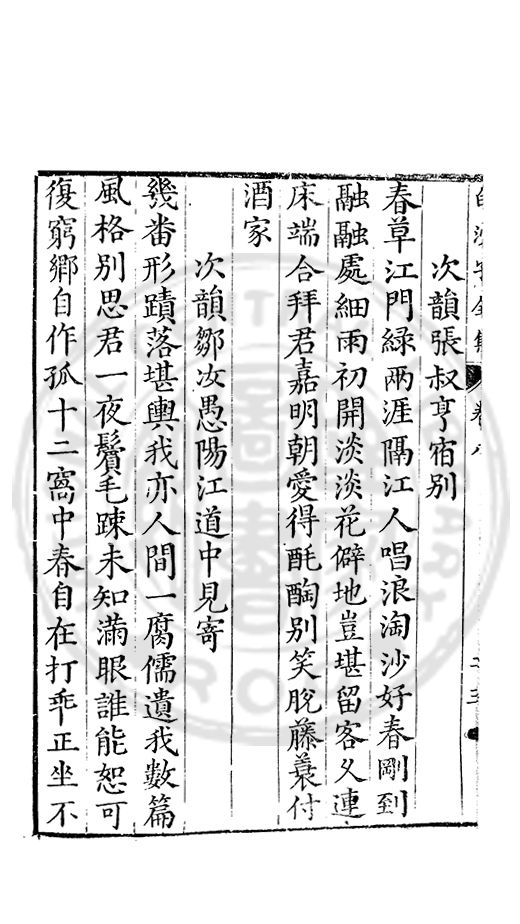 次韻張叔亨宿別
春草江門綠兩涯隔江人唱浪淘沙好春剛到
融融處細雨初開淡淡花僻地豈堪留客久連
床端合拜君嘉明朝愛得酕醄別笑脫藤蓑付
酒家
次韻鄒汝愚陽江道中見寄
幾畨形蹟落堪輿我亦人間一腐儒遺我數篇
風格別思君一夜鬢毛踈未知滿眼誰能恕可
復窮鄉自作孤十二窩中春自在打乖正坐不